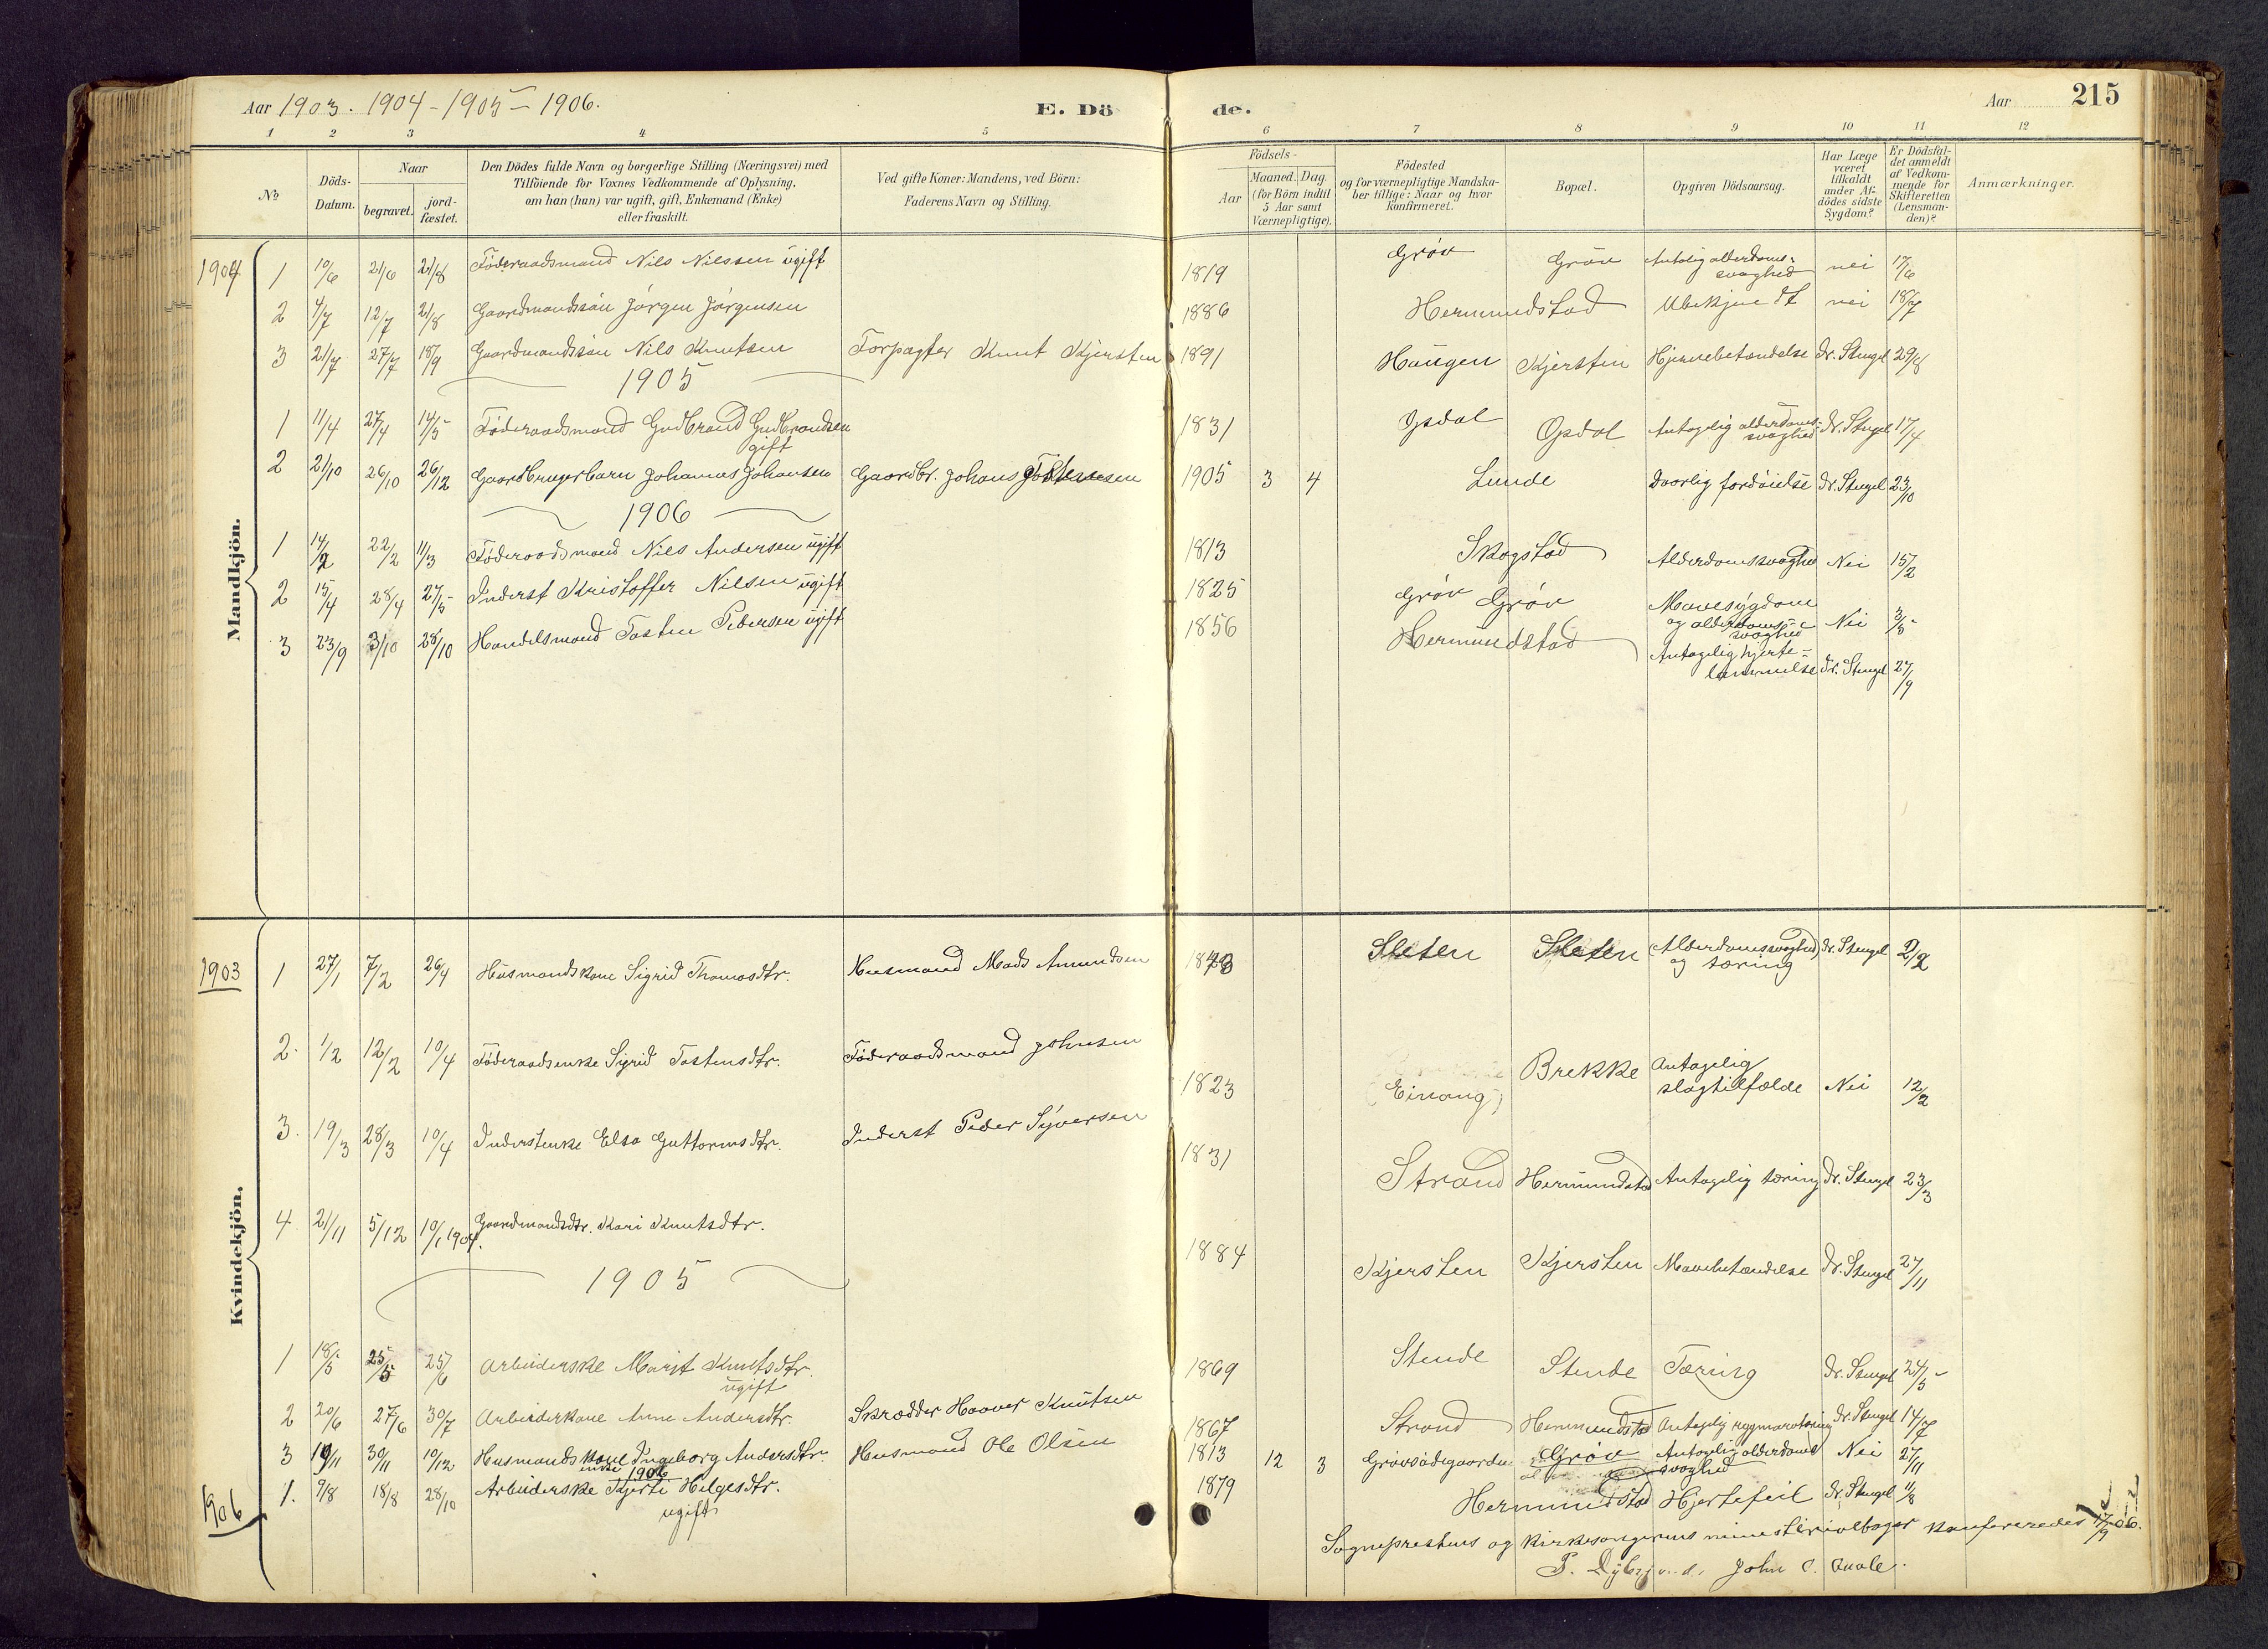 Aar 1903. 1904-1905-1906.
E. Dö
de.
Aar
215
1 2 3 4 5 6 7 8 9 10 11 12
No
Döds-Datum.
Naar
begravet.
jord-fæstet.
Den Dödes fulde Navn og borgerlige Stilling (Næringsvei) med
Tilföiende for Voxnes Vedkommende af Oplysning,
om han (hun) var ugift, gift, Enkemand (Enke)
eller fraskilt.
Ved gifte Koner: Mandens, ved Börn:
Faderens Navn og Stilling.
Födsels-
Aar
Maaned. Dag.
(for Börn indtil
5 Aar samt
Værnepligtige).
Födested
og for værnepligtige Mandska-
ber tillige: Naar og hvor
konfirmeret.
Bopæl.
Opgiven Dödsaarsag.
Har Læge
været
tilkaldt
under Af-
dödes sidste
Sygdom?
Er Dödsfal-
det anmeldt
af Vedkom-
mende for
Skifteretten
(Lensman-
den)?
Anmærkninger.
Mandkjön.
1904 1 10/6 21/6 21/8 Föderaadsmand Nils Nilssen ugift 1819 Gröv Gröv Antalig alderdoms-svaghed nei 17/6
2 4/7 12/7 21/8 Gaardmandssön Jörgen Jörgensen 1886 Hermundstad Ubekjendt nei 18/7
3 21/7 27/7 18/9 Gaardmandssön Nils Knutsen Forpagter Knut Kjersten 1891 Haugen Kjerstin Hjernebetændelse Dr. Stengel 29/8
1905
1 11/4 27/4 14/5 Föderaadsmand Gudbrand Gudbrandsen
gift 1831 Opdal Opdal Antagelig alderdoms-svaghed Dr. Stengel 17/4
2 21/10 26/10 26/12 Gaardbrugerbarn Johannes Johansen Gaardbr. Johans 1905 3 4 Lunde Daarlig fordöielse Dr. Stengel 23/10
1906
1 14/2 22/2 11/3 Föderaadsmand Nils Andersen ugift 1813 Skogstad Alderdomssvaghed Nei 15/2
2 15/4 28/4 27/5 Inderst Kristoffer Nilsen ugift 1825 Gröv Gröv Mavesygdom
og alderdoms-svaghed Nei 3/5
3 23/9 3/10 28/10 Handelsmand Tosten Pedersen ugift 1856 Hermundstad Antagelig hjerte-
lammelse Dr. Stengel 27/9
Kvindekjön.
1903 1 27/1 7/2 26/4 Husmandskone Sigrid Thomasdtr. Husmand Mads Amundsen Sleten Sleten Alderdomssvaghed
og tæring Dr. Stengel 2/2
2. 1/2 12/2 10/4 Föderaadsenke Sigrid Tostensdtr. Föderaadsmand Johnsen 1823 Einang Brekke Antagelig
slagtilfælde Nei 12/2
3. 19/3 28/3 10/4 Inderstenke Elsa Guttormsdtr. Inderst Peder Syversen 1831 Strand Hermundstad Antagelig tæring Dr. Stengel 23/3
4. 21/11 5/12 10/1 1904. Gaardmandsdtr. Kari Knutsdtr. 1884 Kjersten Kjersten Mavebetændelse Dr. Stengel 27/11
1905
1 18/5 25/5 25/6 Arbeiderske Marit Knutsdtr.
ugift 1869 Stende Stende Tæring Dr. Stengel 24/5
2 20/6 27/6 30/7 Arbeiderkone Anne Andersdtr. Skrædder Haaver Knutsen 1867 Strand Hermundstad Antagelig rygmarvtæring Dr. Stengel 14/7
3 19/11 30/11 10/12 Husmandskone Ingeborg Andersdtr. Husmand Ole Olsen 1813 12 3 Grövsödegaarden Gröv Antagelig alderdoms
svaghed Nei 27/11
enke 1906
1906 1. 9/8 18/8 28/10 Arbeiderske Kjersti Helgesdtr.
ugift 1879 Hermundstad Hjertefeil Dr. Stengel 11/8
Sogneprestens og kirkesangerens ministerialbøger konfereredes 17/9 06.
John O. Quale.